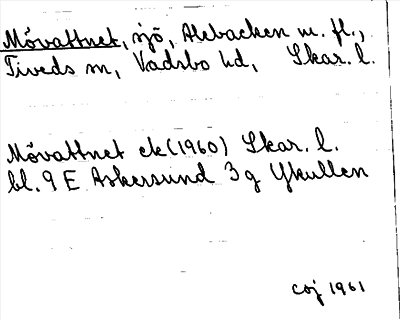 Mövattnet, sjö, Alebacken m. fl.,
Tiveds sn, Vadsbo hd, Skar. l.
Mövattnet ek (1960) Skar. l.
bl. 9 E Askersund 3 g Ykullen
coj 1961